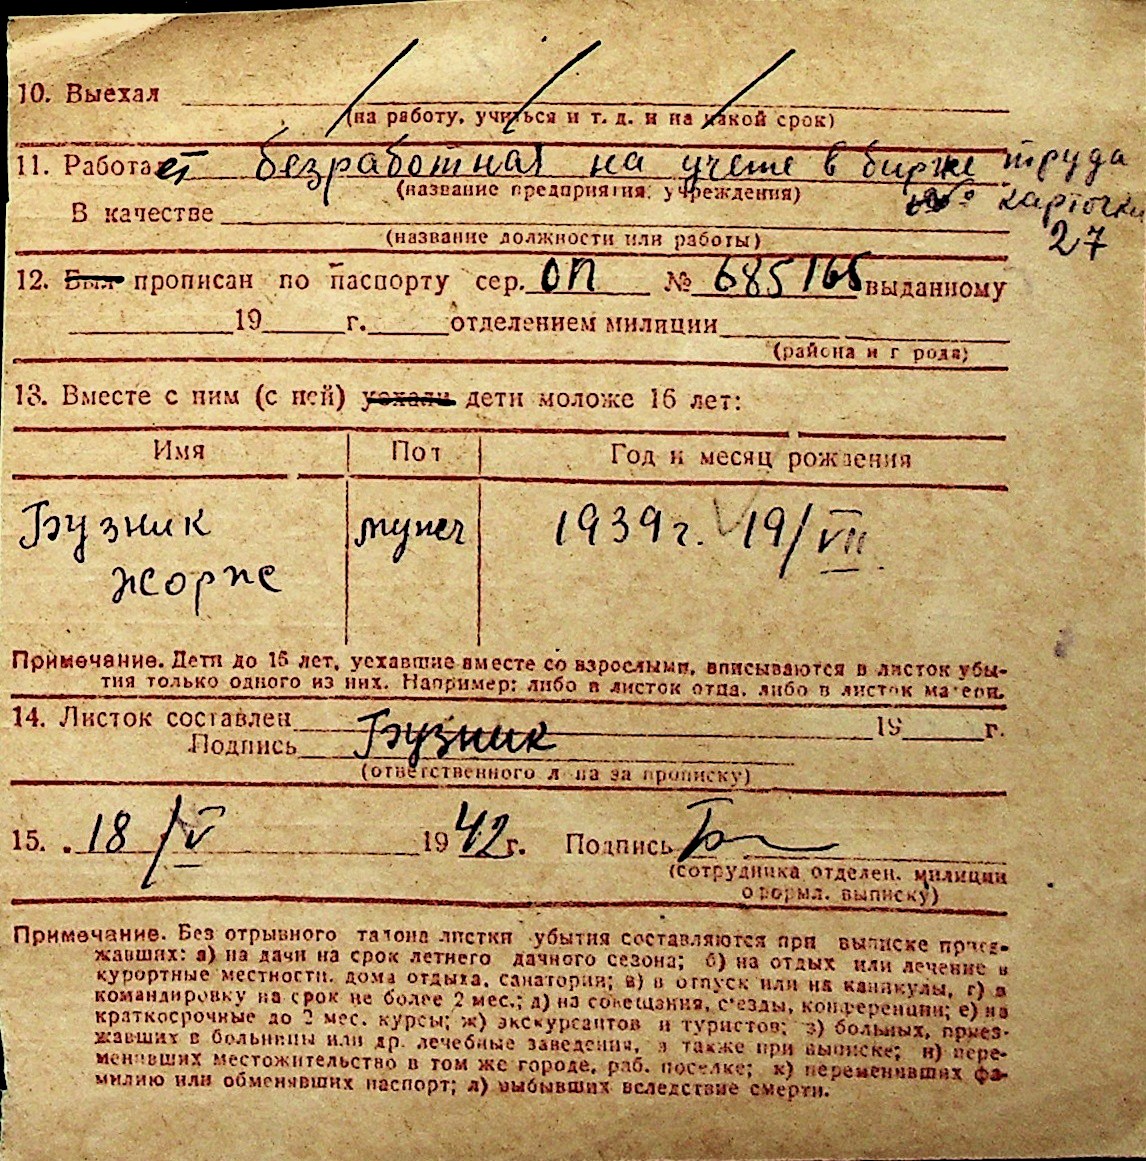 10. Выехал
(на работу, учиться и т. д. и на какой срок)
11. Работает безработная на учете в бирже труда
(название предприятия, учреждения) № карточки
В качестве 27
(название должности или работы)
12. Был прописан по паспорту сер. ОП № 685165 выданному
19 г. отделением милиции
(района и города)
13. Вместе с ним (с ней) уехали дети моложе 16 лет:
Имя Пол Год и месяц рождения
Бузник муж 1939 г. 19/VII
Жорже
Примечание. Дети до 16 лет, уехавшие вместе со взрослыми, вписываются в листок убы-
тия только одного из них. Например: либо в листок отца, либо в листок матери.
14. Листок составлен 19 г.
Подпись Бузник
(ответственного лица за прописку)
15. 18/V 1942 г. Подпись
(сотрудника отделен. милиции
оформл. выписку)
Примечание. Без отрывного талона листки убытия составляются при выписке приез-
жавших: а) на дачи на срок летнего дачного сезона; б) на отдых или лечение в
курортные местности, дома отдыха, санатории; в) в отпуск или на каникулы, г) в
командировку на срок не более 2 мес.; д) на совещания, съезды, конференции; е) на
краткосрочные до 2 мес. курсы; ж) экскурсантов и туристов; з) больных, приез-
жавших в больницы или др. лечебные заведения, а также при выписке; и) пере-
менивших местожительство в том же городе, раб. поселке; к) переменивших фа-
милию или обменявших паспорт; л) выбывших вследствие смерти.